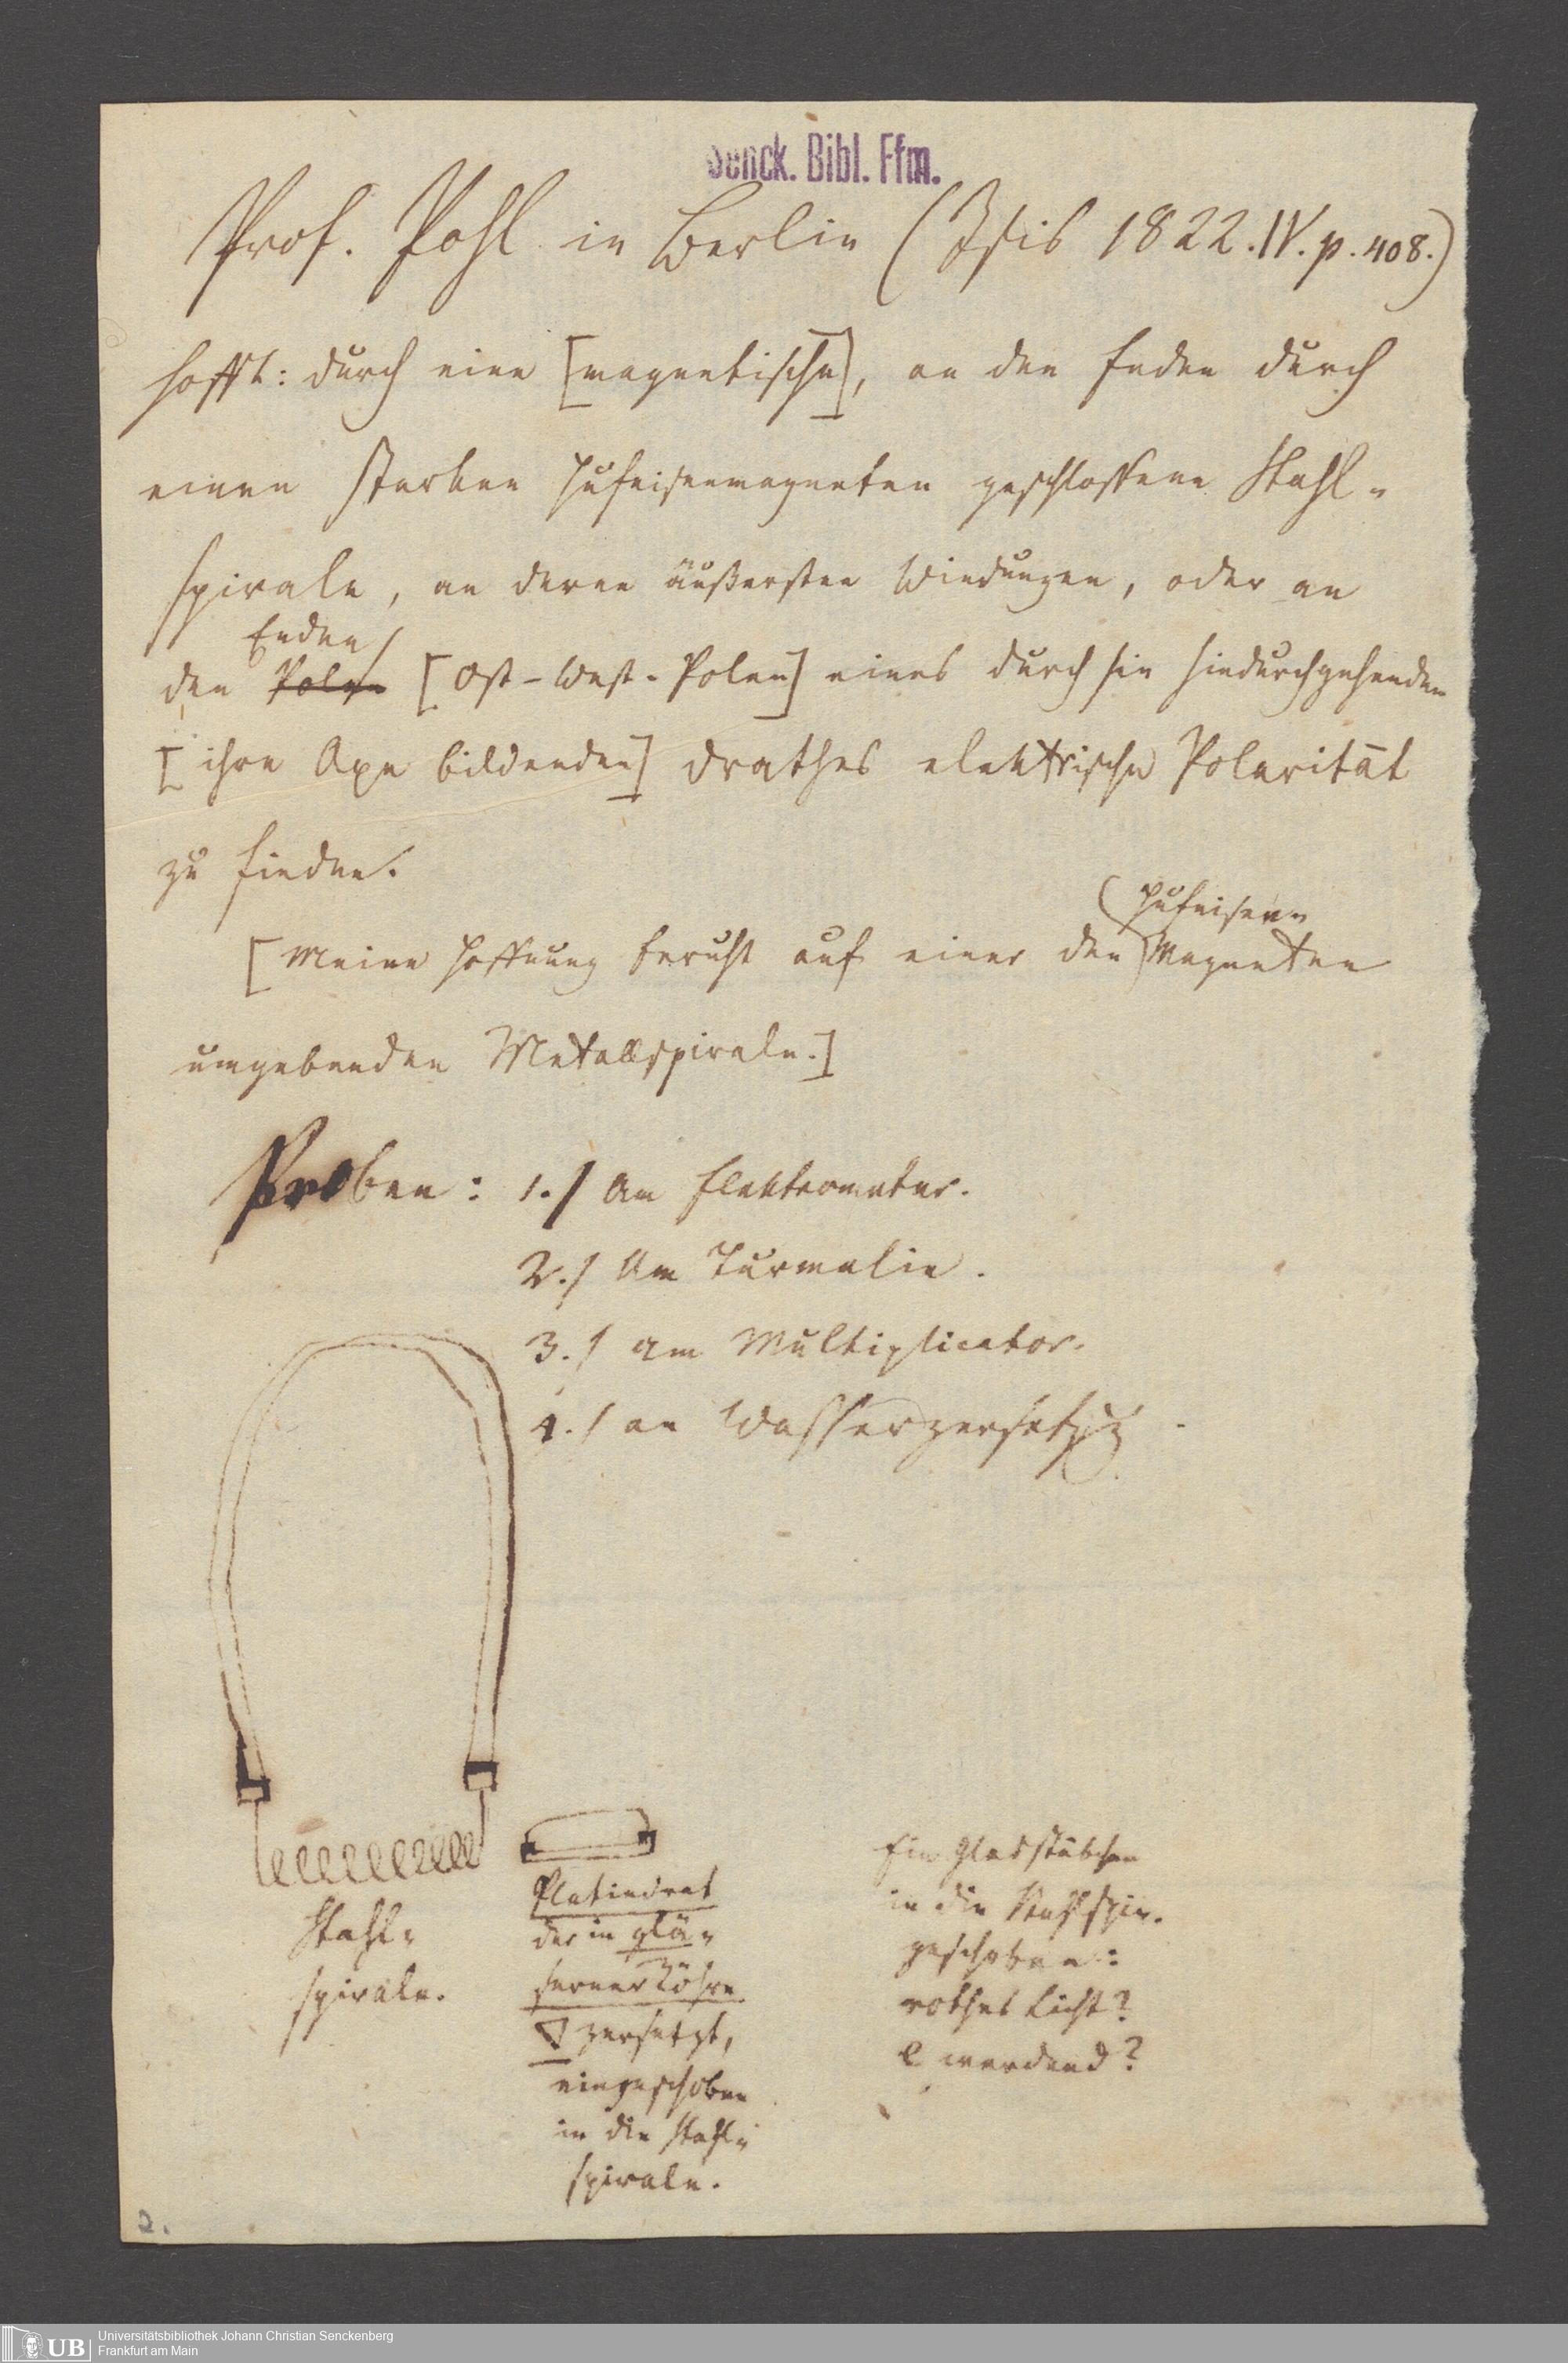 Senck. Bibl. Ffm.
Prof. Pohl in Berlin (Isis 1822. IV. p. 408.)
hofft: durch eine [magnetische], an den Enden durch
einen starken Hufeisenmagneten geschlossene Stahl-
spirale, an deren äußersten Windungen, oder an
Enden
den Polen [Ost-West-Polen] eines durch sie hindurchgehenden
[ihre Axe bildenden] Drathes elektrische Polarität
zu finden.
(Hufeisen-
[Meine Hoffnung beruht auf einer den) Magneten
umgebenden Metallspirale.]
Proben: 1./ Am Elektrometer.
2./ Am Turmalin.
3./ am Multiplicator.
4./ an Wasserzersetzg.
Stahl-
spirale.
Platindrat
der in glä-
serner Röhre
zersetzt,
eingeschoben
in die Stahl-
spirale.
Ein Glasstäbchen
in die Stahlspir.
geschoben:
rothes Licht?
e werdend?
2.
UB Universitätsbibliothek Johann Christian Senckenberg
Frankfurt am Main